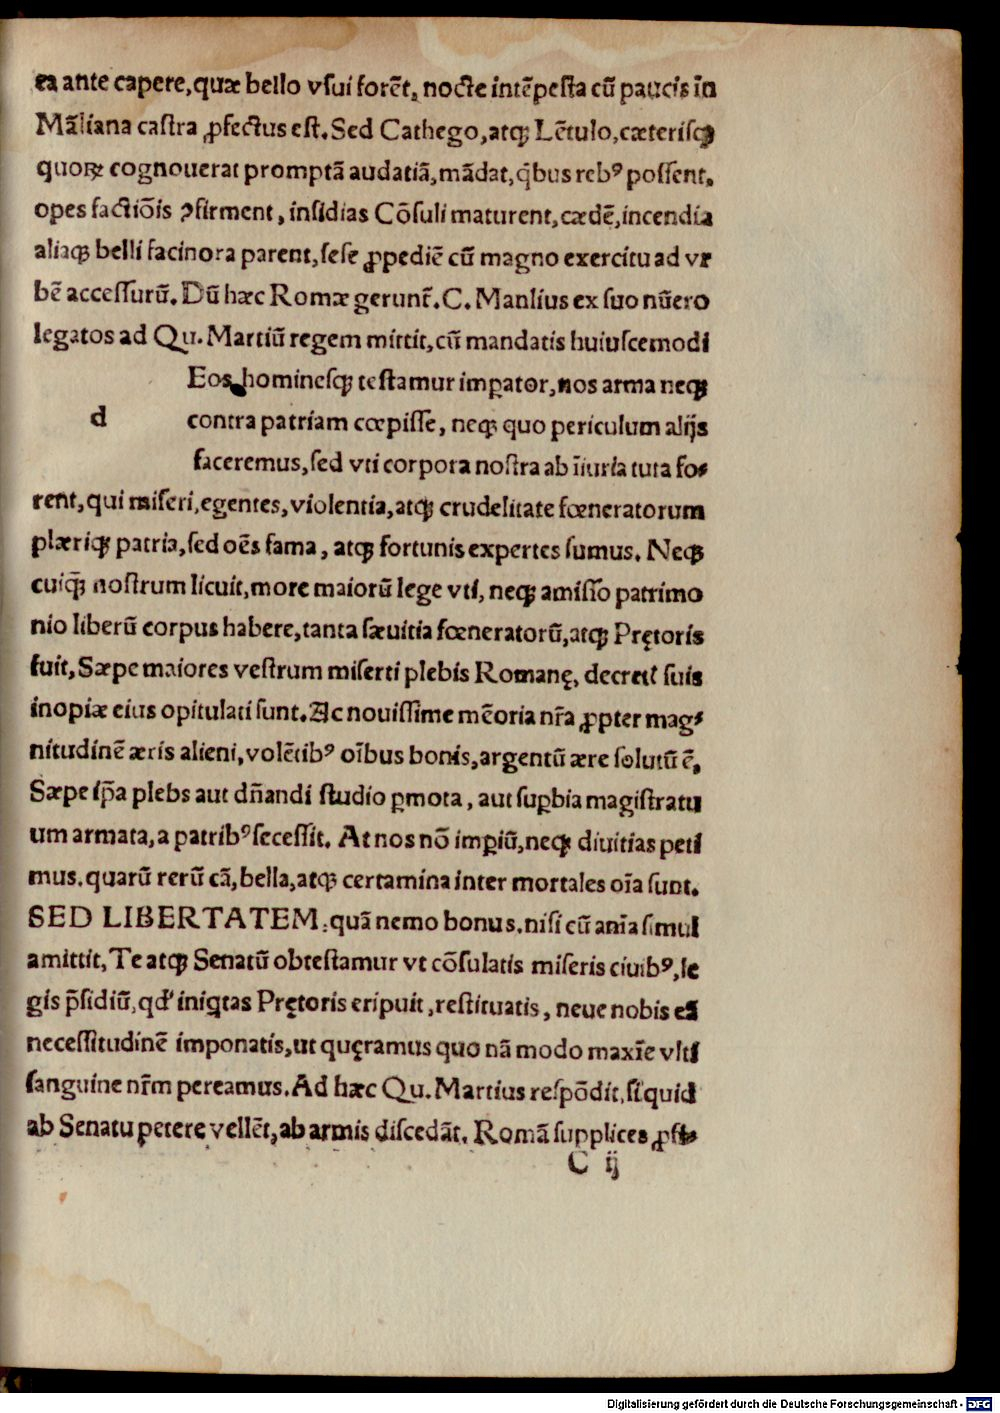 ea ante capere, quæ bello vſui forẽt, nocte intẽpeſta cũ paucis in
Mãliana caſtra ꝓfectus eſt. Sed Cathego, atqꝫ Lẽtulo, cæteriſqꝫ
quoꝝ cognouerat promptã audatiã, mãdat, q̃bus rebꝰ poſſent,
opes factiõis ꝯfirment, inſidias Cõſuli maturent, cædẽ, incendia
aliaqꝫ belli facinora parent, ſeſe ꝓpediẽ cũ magno exercitu ad vr
bẽ acceſſurũ. Dũ hæc Romæ gerunt̃. C. Manlius ex ſuo nũero
legatos ad Qu. Martiũ regem mittit, cũ mandatis huiuſcemodi
Eos, homineſqꝫ teſtamur imꝑator, nos arma neqꝫ
d contra patriam cœpiſſe, neqꝫ quo periculum alijs
faceremus, ſed vti corpora noſtra ab iĩuria tuta fo⸗
rent, qui miſeri, egentes, violentia, atqꝫ crudelitate fœneratorum
plæriqꝫ patria, ſed oẽs fama, atqꝫ fortunis expertes ſumus. Neqꝫ
cuiqꝫ̃ noſtrum licuit, more maiorũ lege vti, neqꝫ amiſſo patrimo
nio liberũ corpus habere, tanta ſæuitia fœneratorũ, atqꝫ Prętoris
fuit, Sæpe maiores veſtrum miſerti plebis Romanę, decret᷒ ſuis
inopiæ eius opitulati ſunt. Ac nouiſſime mẽoria nr̃a ꝓpter mag⸗
nitudinẽ æris alieni, volẽtibꝰ oĩbus bonis, argentũ ære ſolutũ ẽ,
Sæpe ip̃a plebs aut dñandi ſtudio ꝑmota, aut ſuꝑbia magiſtratu
um armata, a patribꝰ ſeceſſit. At nos nõ imꝑiũ, neqꝫ diuitias peti
mus. quarũ rerũ cã, bella, atqꝫ certamina inter mortales oĩa ſunt.
SED LIBERTATEM: quã nemo bonus. niſi cũ anĩa ſimul
amittit, Te atqꝫ Senatũ obteſtamur vt cõſulatis miſeris ciuibꝰ, le
gis p̃ſidiũ, qđ iniq̃tas Prętoris eripuit, reſtituatis, neue nobis eã
neceſſitudinẽ imponatis, ut quęramus quo nã modo maxĩe vlti
ſanguine nr̃m pereamus. Ad hæc Qu. Martius reſpõdit, ſi quid
ab Senatu petere vellẽt, ab armis diſcedãt. Romã ſupplices ꝓfi⸗
C ij
Digitalisierung gefördert durch die Deutsche Forschungsgemeinschaft - DFG